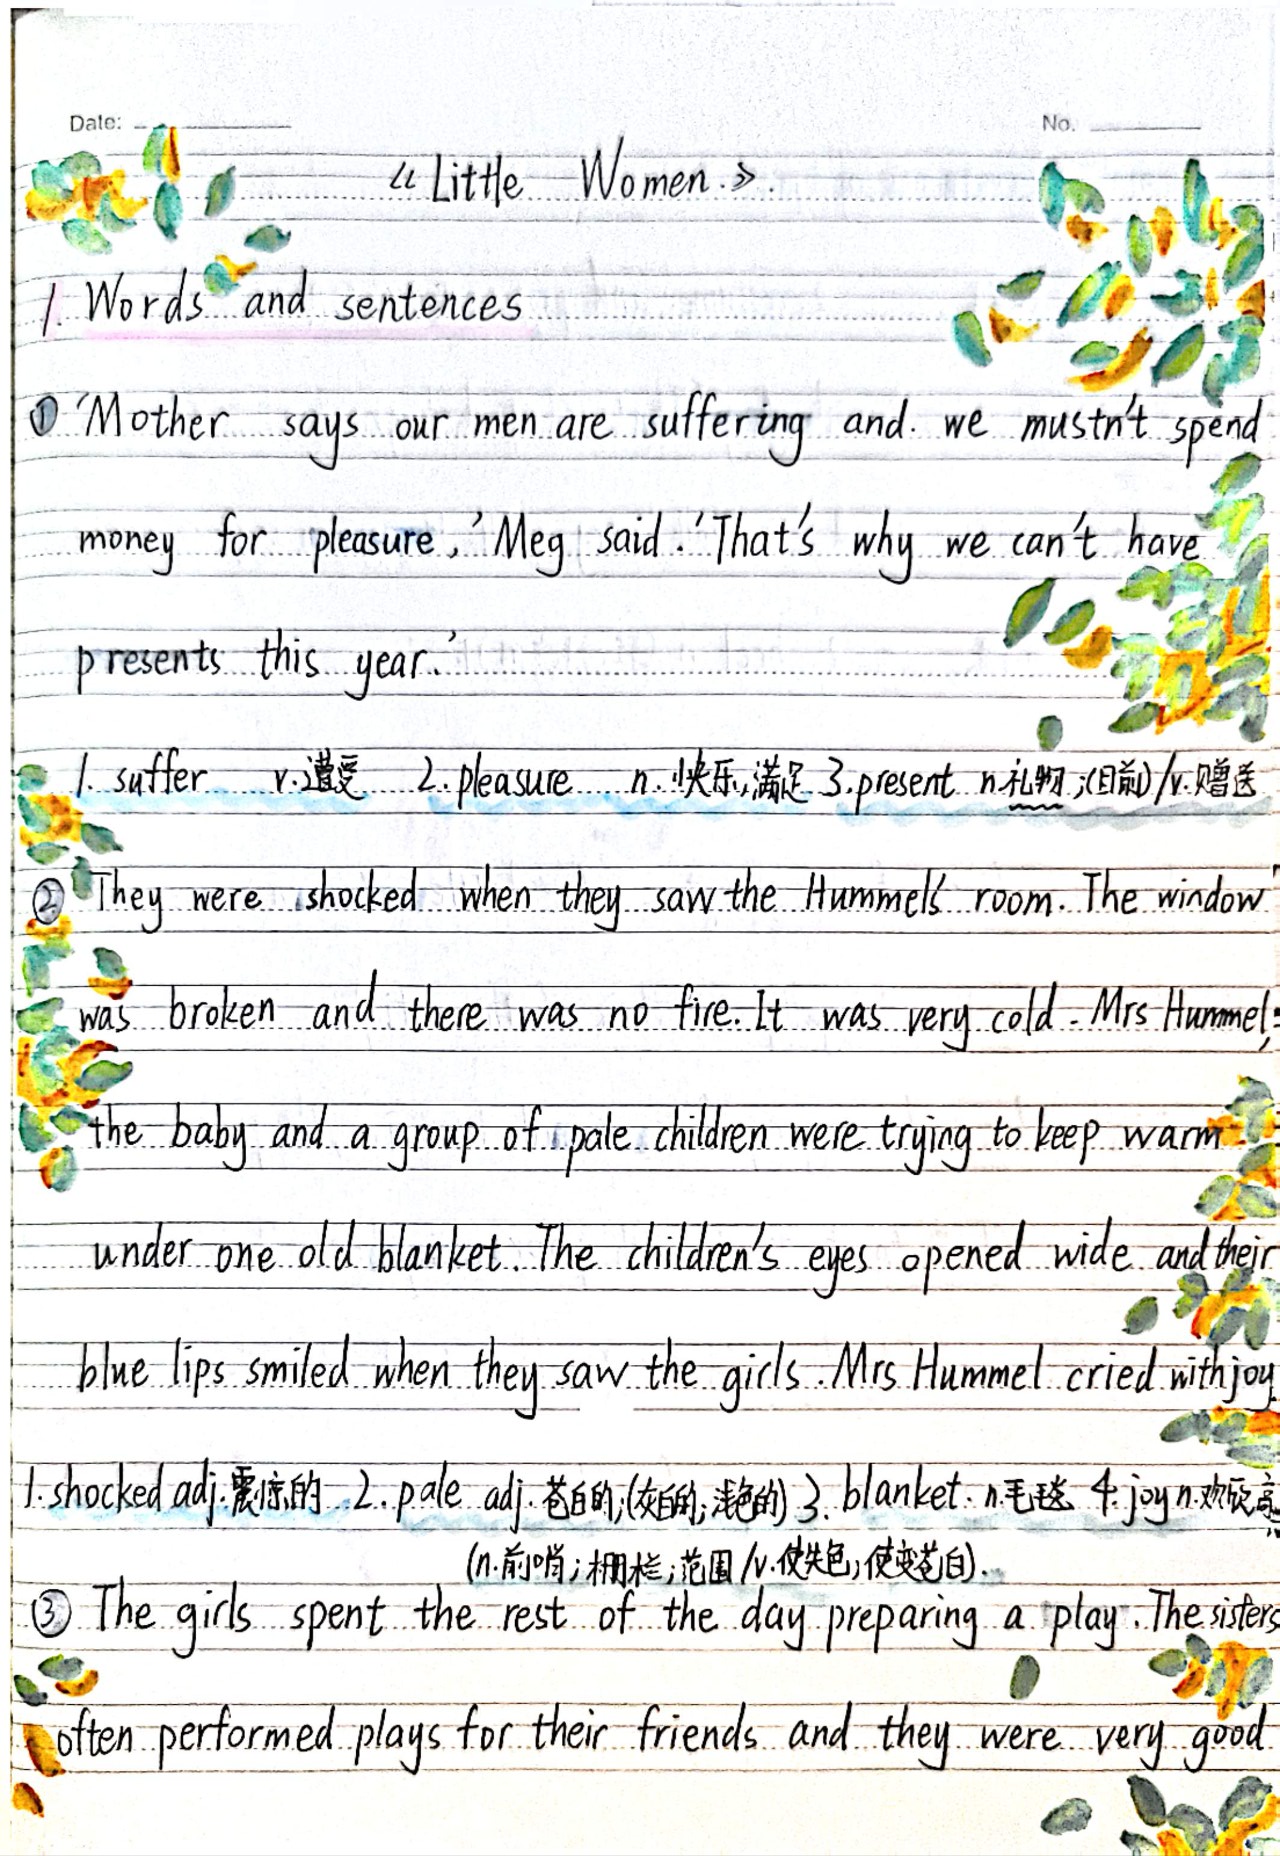 Date:
No.
《Little Women.》.
1. Words and sentences
① 'Mother says our men are suffering and. we mustn't spend
money for pleasure,' Meg said. 'That's why we can't have
presents this year.'
1. suffer v.遭受 2.pleasure n.快乐,满足 3.present n.礼物;(目前)/v.赠送
② They were shocked when they saw the Hummel's room. The window
was broken and there was no fire. It was very cold. Mrs Hummel,
the baby and a group of pale children were trying to keep warm
under one old blanket. The children's eyes opened wide and their
blue lips smiled when they saw the girls. Mrs Hummel cried with joy
1.shocked adj.震惊的 2.pale adj.苍白的;(灰白的;浅色的) 3. blanket. n.毛毯 4.joy n.欢欣,高
(n.前哨;栅栏;范围/v.使失色;使变苍白).
③ The girls spent the rest of the day preparing a play. The sisters
often performed plays for their friends and they were very good